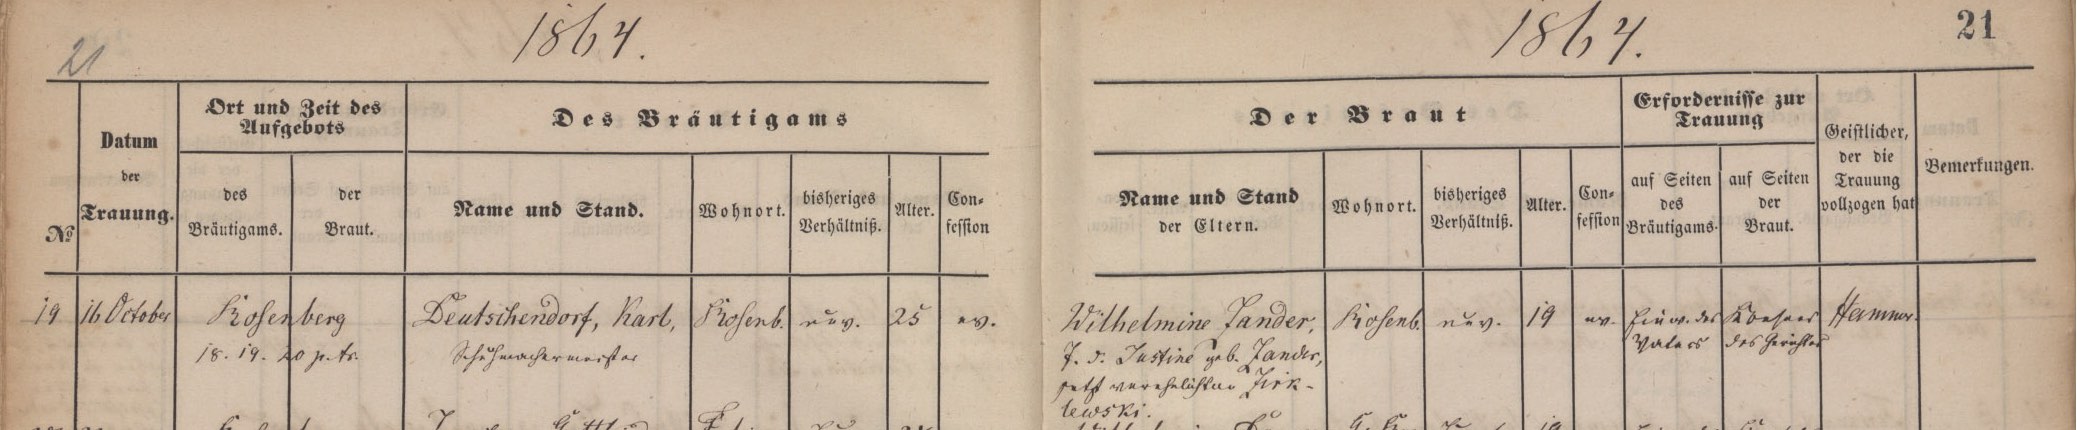 21
1864.
1864.
21
Ort und Zeit des
Aufgebots
Des Bräutigams
Der Braut
Erfordernisse zur
Trauung
Geistlicher,
der die
Trauung
vollzogen hat
Bemerkungen.
№
Datum
der
Trauung.
des
Bräutigams.
der
Braut.
Name und Stand.
Wohnort.
bisheriges
Verhältniß.
Alter.
Con-
fession
Name und Stand
der Eltern.
Wohnort.
bisheriges
Verhältniß.
Alter.
Con-
fession
auf Seiten
des
Bräutigams.
auf Seiten
der
Braut.
19
16 October
Rosenberg
18. 19. 20 p. tr.
Deutschendorf, Karl,
Schuhmachermeister
Rosenb.
unv.
25
ev.
Wilhelmine Zander,
T. d. Justine geb. Zander,
jetzt verehelichten
lewski.
Rosenb.
unv.
19
ev.
Einw. des
Vaters
Konsens
des Gerichtes
Hammer.